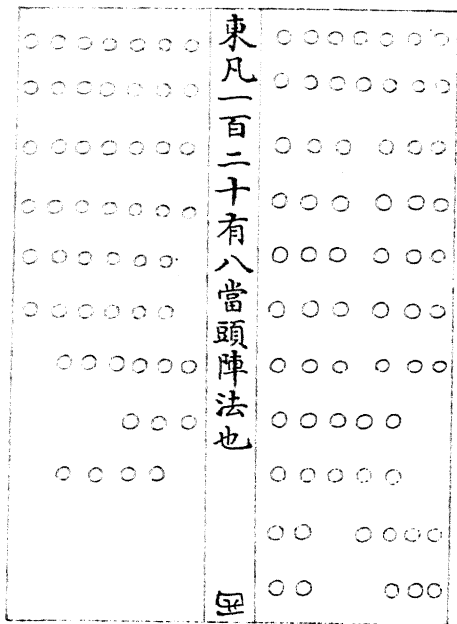 東凡一百二十有八當頭陣法也